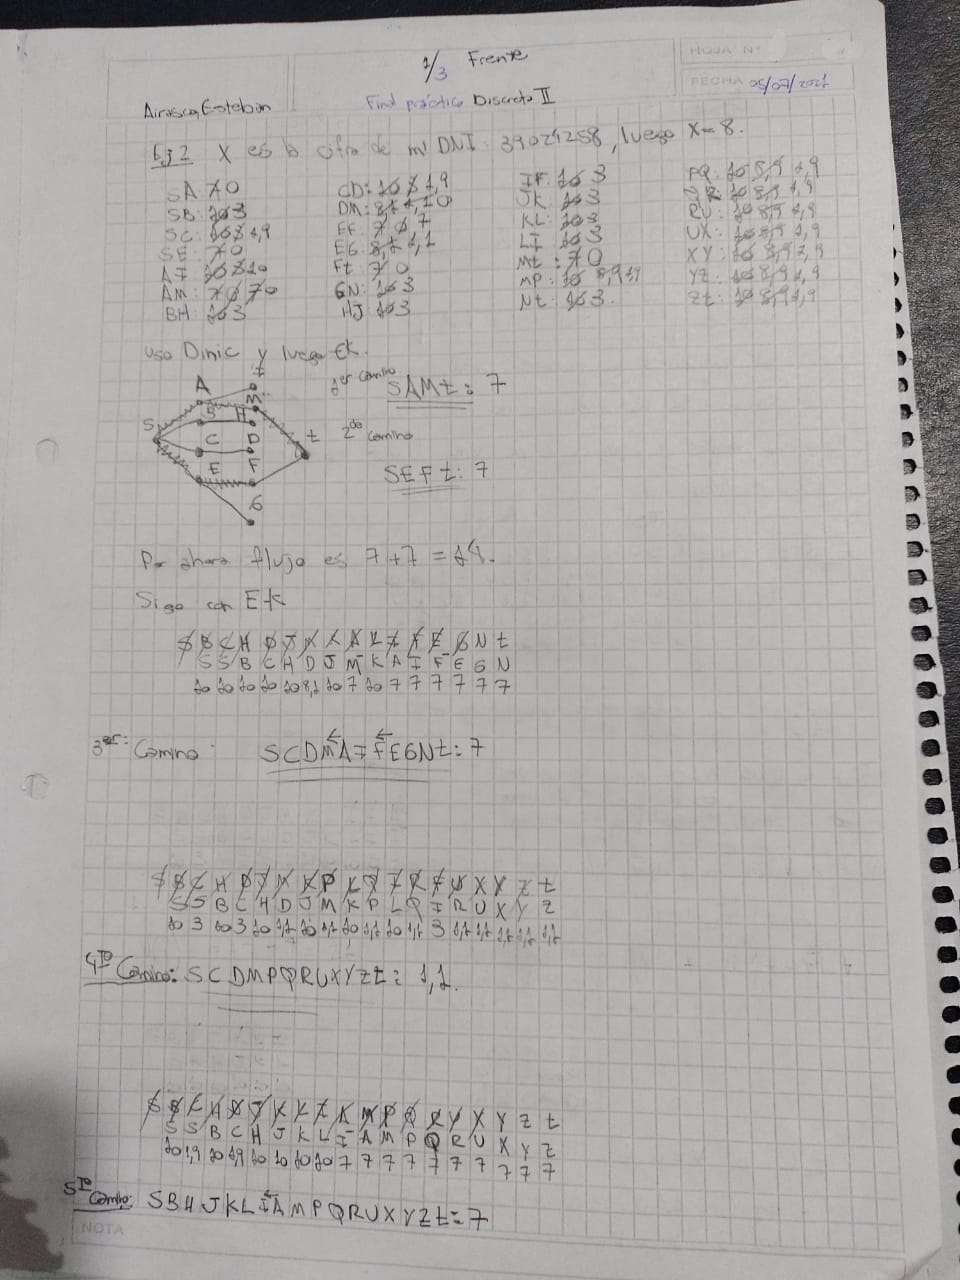 1/3 Frente
HOJA N°
FECHA 05/07/2021
Airasca, Esteban
Final práctico Discreta II
Ej 2 X es la cifra de mi DNI: 39021258, luego X=8.
SA: 7 0
SB: 10 3
SC: 10 3 1,9
SE: 7 0
AI: 10 3 10
AM: 7 0 7 0
BH: 10 3
CD: 10 3 1,9
DM: 8,1 1,1 0
EF: 7 0 7
EG: 8,1 1,1
Ft: 7 0
GN: 10 3
HJ: 10 3
IF: 10 3
JK: 10 3
KL: 10 3
LI: 10 3
Mt: 7 0
MP: 10 8,9 1,9
Nt: 10 3
PQ: 10 8,9 1,9
QR: 10 8,9 1,9
RU: 10 8,9 1,9
UX: 10 8,9 1,9
XY: 10 8,9 1,9
YZ: 10 8,9 1,9
Zt: 10 8,9 1,9
Uso Dinic y luego EK.
A I
M
B H
S
C D t
E F
G
1er Camino
SAMt: 7
2do Camino
SEFt: 7
Por ahora flujo es 7+7=14.
Sigo con EK
S B C H D J M K A L I F E G N t
S S B C H D J M K A I F E G N
10 10 10 10 10 8,1 10 7 10 7 7 7 7 7 7
3er: Camino: SCDMAIFEGNt: 7
S B C H D J M K P L Q I R F U X Y Z t
S S B C H D J M K P L Q I R U X Y Z
10 3 10 3 10 1,1 10 1,1 10 1,1 10 1,1 3 1,1 1,1 1,1 1,1 1,1
4to Camino: SCDMPQRUXYZt: 1,1.
S B C H D J K L I A M P Q R U X Y Z t
S S B C H J K L I A M P Q R U X Y Z
10 1,9 10 1,9 10 10 10 10 7 7 7 7 7 7 7 7 7 7
5to Camino: SBHJKLIAMPQRUXYZt=7
NOTA